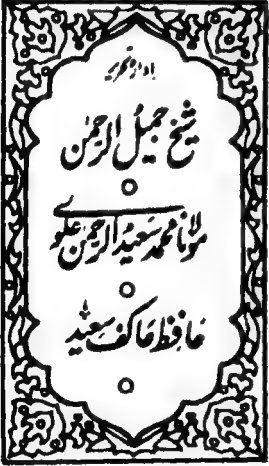 ادارۂ تحریر
شیخ جمیل الرحمٰن
مولانا محمد سعید الرحمٰن علوی
حافظ عاکف سعید